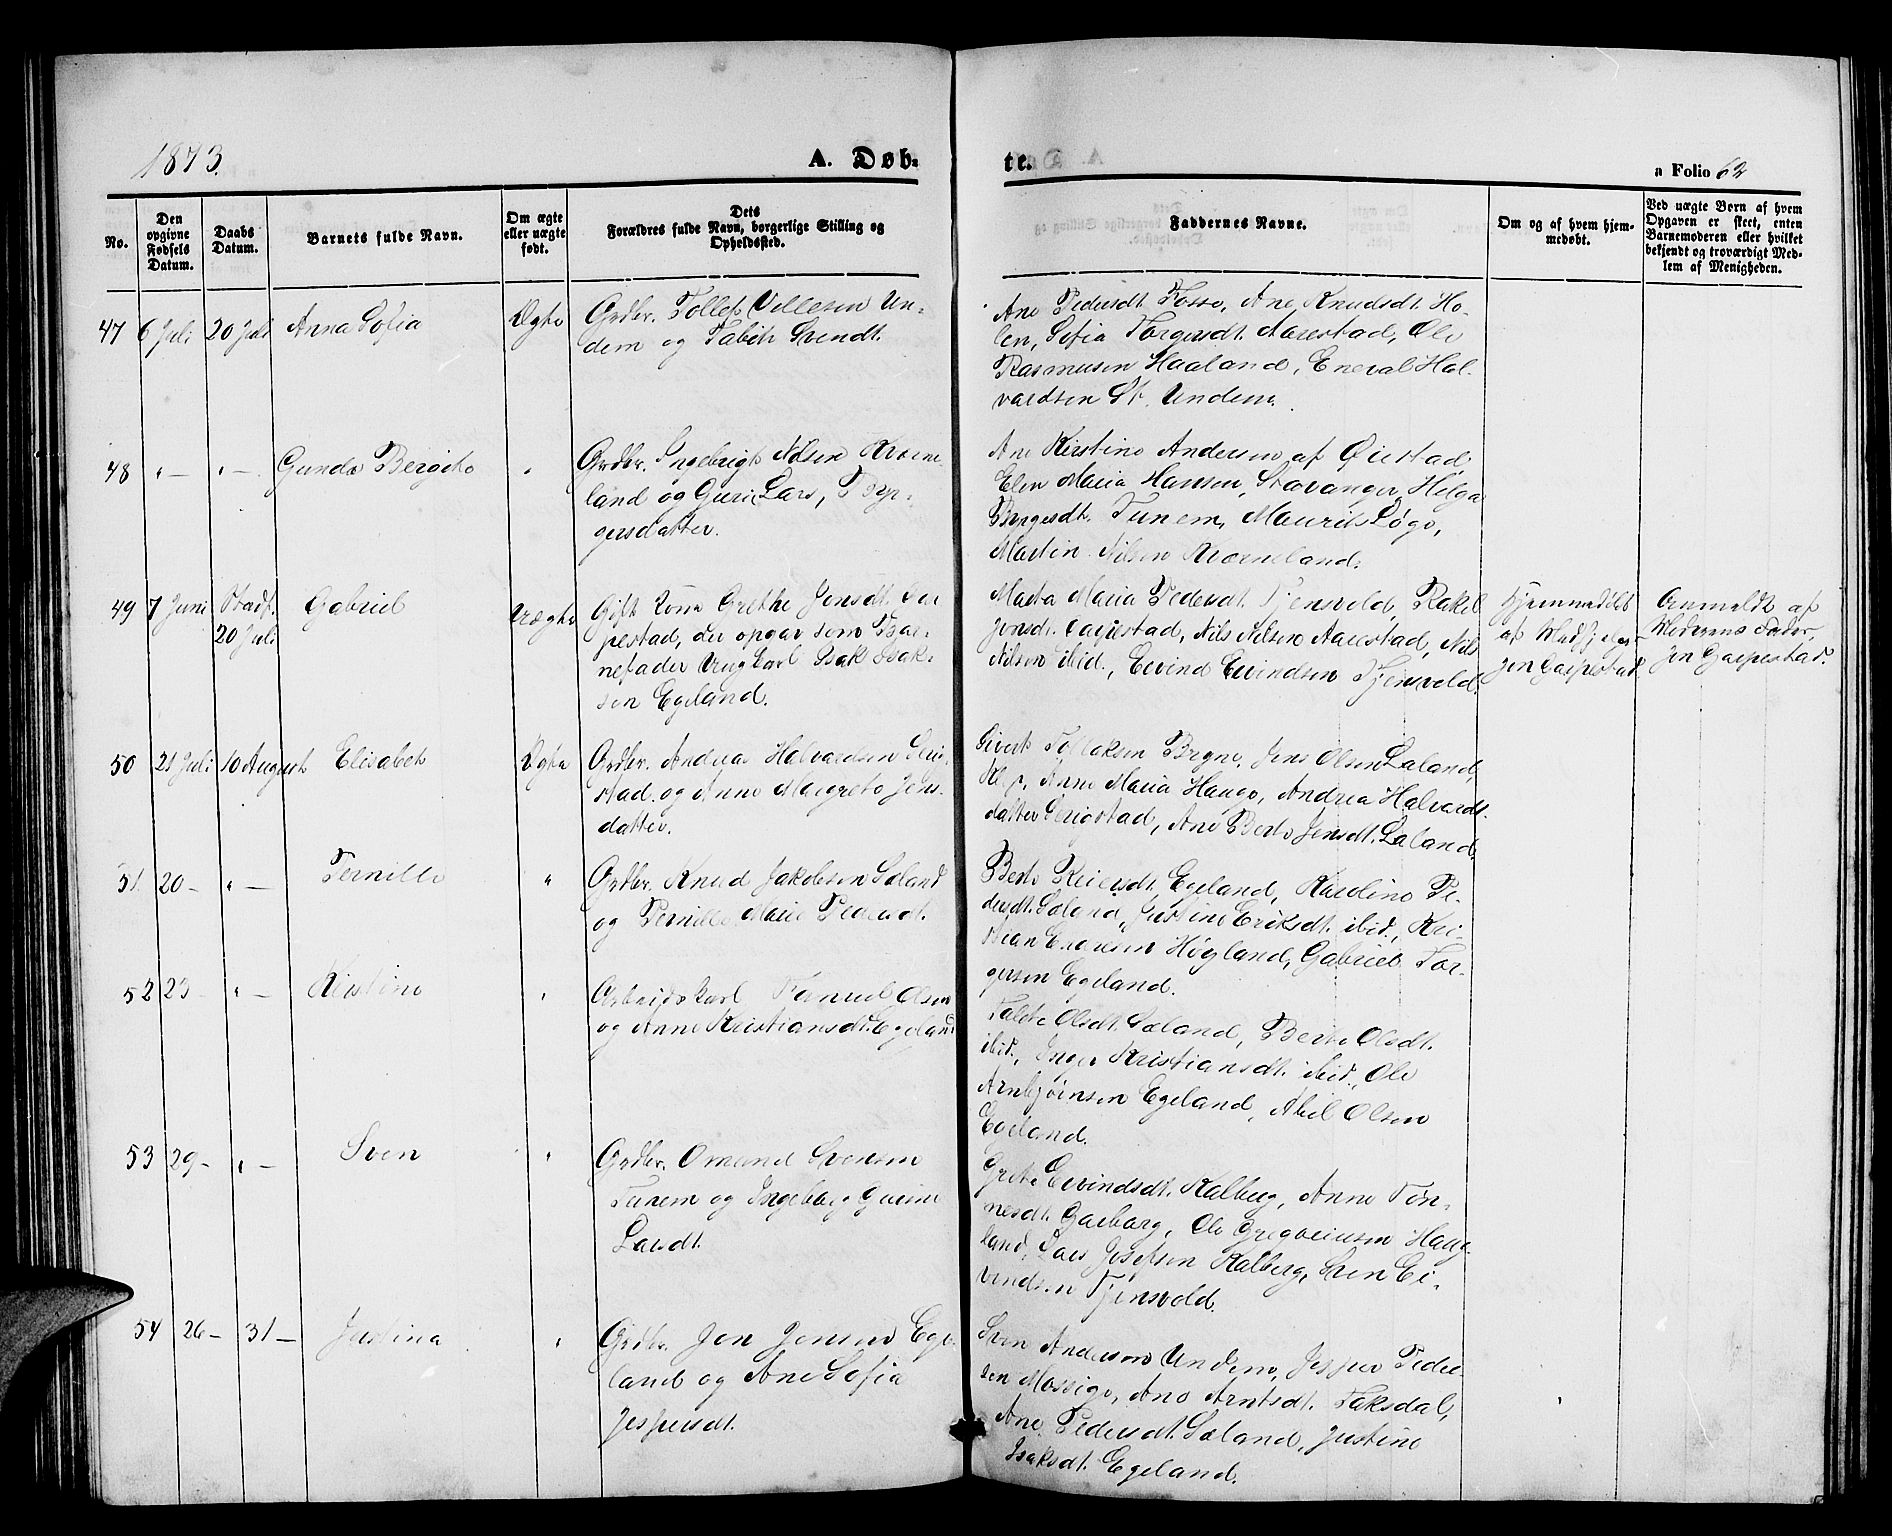 1873.
A. Døb-
te.
a Folio 62
No.
Den opgivne Fødsels Datum.
Daabs Datum.
Barnets fulde Navn.
Om ægte eller uægte født.
Dets Forældres fulde Navn, borgerlige Stilling og Opholdssted.
Faddernes Navne.
Om og af hvem hjemmedøbt.
Ved uægte Børn af hvem Opgaven er skeet, enten Barnemoderen eller hvilket bekjendt og troværdigt Medlem af Menigheden.
47 6 Juli 20 Juli Anna Sofia Ægte
Grdbr. Tollef Villesen Un-
dem og Tabita Svendt.
Ane Pedersdt. Fosse, Ane Knudsdt. Ho-
len, Sofia Torgersdt. Aarestad, Ole
Rasmusen Haaland, Eneval Hal-
vardsen St. Undem.
48 " — " — Gunda Bergite "
Grdbr. Ingebrigt Nilsen Kværne-
land og Guri Lars, Byr-
gersdatter.
Ane Kirstine Andersen af Øiestad
Elen Maria Hansen, Stavanger, Helga
Byrgesdt. Tunem, Maurits Løge,
Martin Nilsen Kværneland.
49 7 Juni Stadf. 20 Juli Gabriel Uægte
Gift Kone Grethe Jensdt. Gar
pestad, der opgav som Bar-
nefader Ungkarl Isak Isak-
sen Egeland.
Marta Maria Pedersdt. Tjensvold, Rakel
Jonsdt. Garpestad, Nils Nilsen Aarestad, Nils
Nilsen ibid., Eivind Eivindsen Tjensvold.
Hjemmedøbt
af
Jon Garpestad
Anmeldt af
Moderens Fader,
Jon Garpestad.
50 21 Juli 10 August Elisabet Ægte
Grdbr. Andreas Halvardsen Serig-
stad og Anne Margrete Jens-
datter.
Sivert Tollaksen Bryne, Jens Olsen Laland,
Klep, Anne Maria Hauge, Andrea Halvards-
datter Serigstad, Ane Berte Jensdt. Laland.
51. 20 — " — Pernille "
Grdbr. Knud Jakobsen Sæland
og Pernille Marie Pedersdt.
Berte Reiersdt. Egeland, Karoline Pe-
dersdt. Sæland, Justine Eriksdt. ibid., Kri-
stian Enoksen Høyland, Gabriel Tor-
gersen Egeland.
52 23 — " — Kirstine "
Arbeidskarl Samuel Olsen
og Anne Kristiansdt. Egeland
Olsdt. Sæland, Berte Olsdt.
ibid., Inger Kristiansdt. ibid., Ole
Arnbjørnsen Egeland, Abel Olsen
Egeland.
53 29 — " — Sven "
Grdbr. Omund Svensen
Tunem og Ingeborg Gurine
Larsdt.
Grete Eivindsdt. Kalberg, Anne Tøn-
nesdt. Garborg, Ole Gregoriusen Haug-
land, Lars Josefsen Kalberg, Sven Ei-
vindsen Tjensvold.
54 26 — 31 — Justina "
Grdbr. Jon Jonsen Ege-
land og Ane Sofia
Jespersdt.
Sven Andersen Undem, Jesper Peder-
sen Mossige, Ane Arntsdt. Taksdal,
Ane Pedersdt. Sæland, Justine
Isaksdt. Egeland.